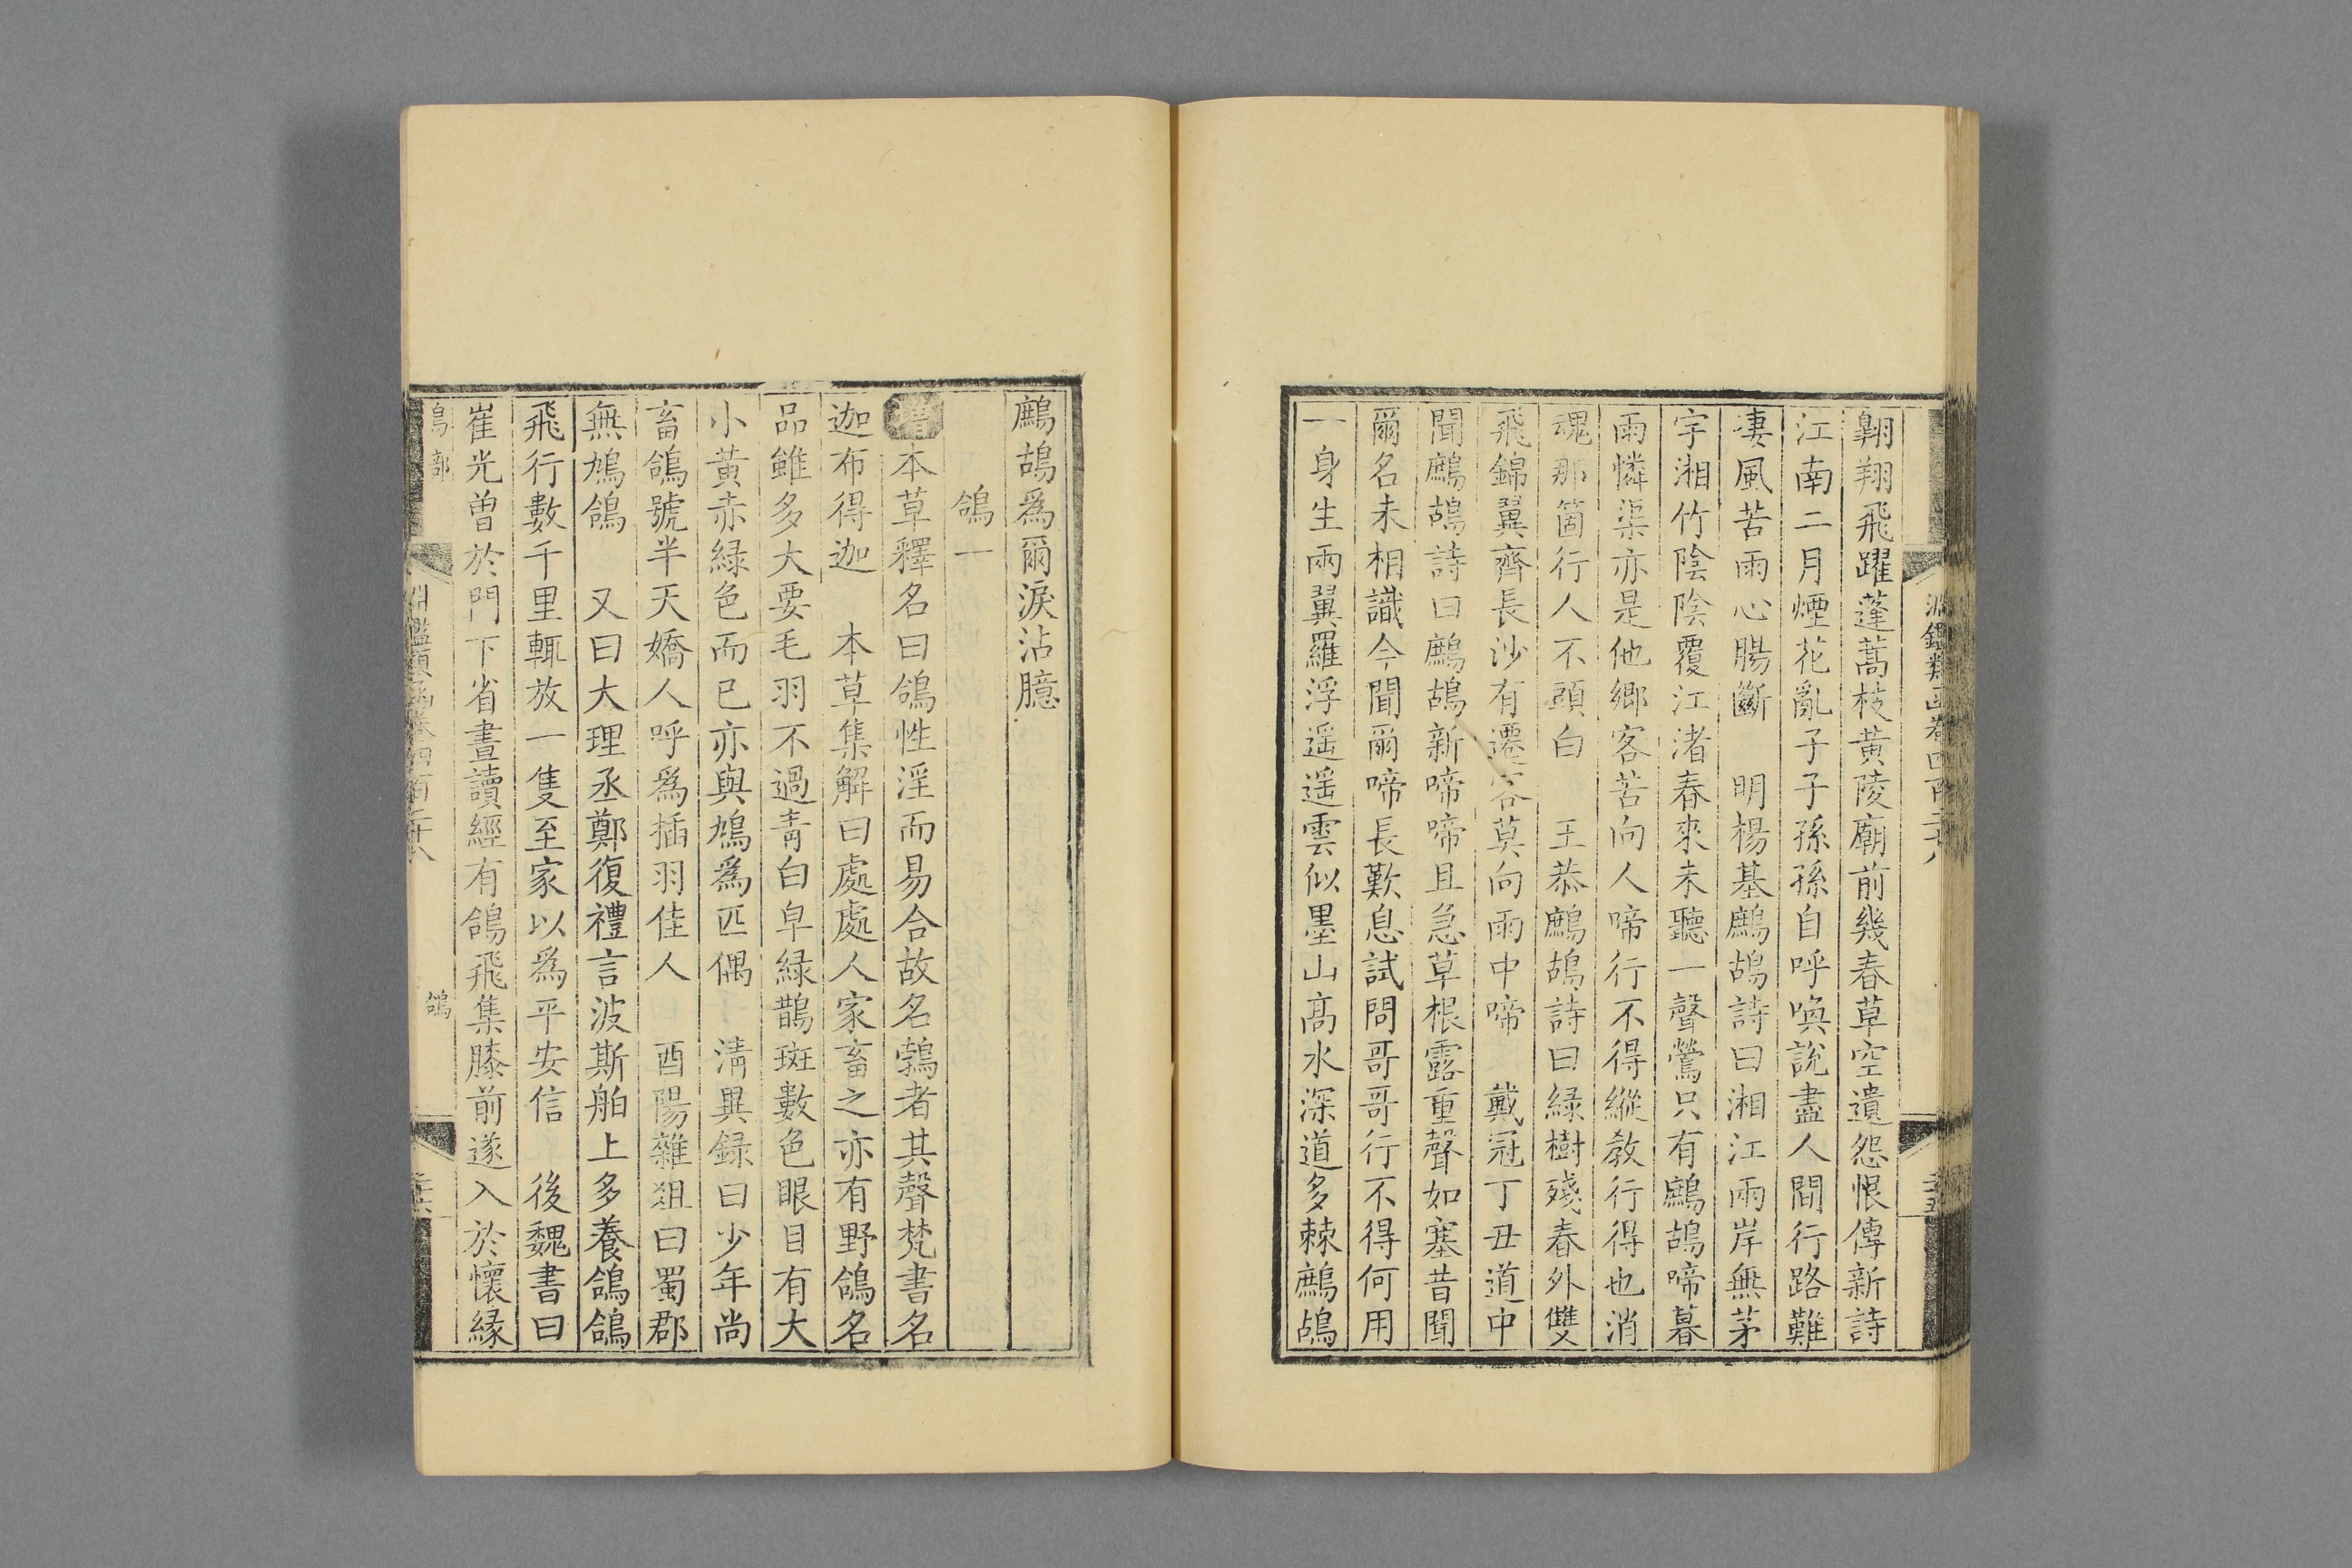 翺翔飛躍蓬蒿枝黃陵廟前幾春草空遺怨恨傳新詩
江南二月煙花亂子子孫孫自呼喚說盡人間行路難
凄風苦雨心腸斷　明楊基鷓鴣詩曰湘江兩岸無茅
宇湘竹陰陰覆江渚春來未聽一聲鶯只有鷓鴣啼暮
雨憐渠亦是他鄉客苦向人啼行不得縱教行得也消
魂那箇行人不頭白　王恭鷓鴣詩曰緑樹殘春外雙
飛錦翼齊長沙有遷客莫向雨中啼　戴冠丁丑道中
聞鷓鴣詩曰鷓鴣新啼啼且急草根露重聲如塞昔聞
爾名未相識今聞爾啼長歎息試問哥哥行不得何用
一身生兩翼羅浮遥遥雲似墨山高水深道多棘鷓鴣
鷓鴣爲爾淚沾臆
鴿一
增本草釋名曰鴿性淫而易合故名鵓者其聲梵書名
迦布得迦　本草集解曰處處人家畜之亦有野鴿名
品雖多大要毛羽不過青白皁緑鵲斑數色眼目有大
小黃赤緑色而已亦與鳩爲匹偶　清異録曰少年尚
畜鴿號半天嬌人呼爲插羽佳人　酉陽雜俎曰蜀郡
無鳩鴿　又曰大理丞鄭復禮言波斯舶上多養鴿鴿
飛行數千里輒放一隻至家以爲平安信　後魏書曰
崔光曾於門下省晝讀經有鴿飛集膝前遂入於懷緣
鳥部
淵鑑類函卷四百二十八
鴿